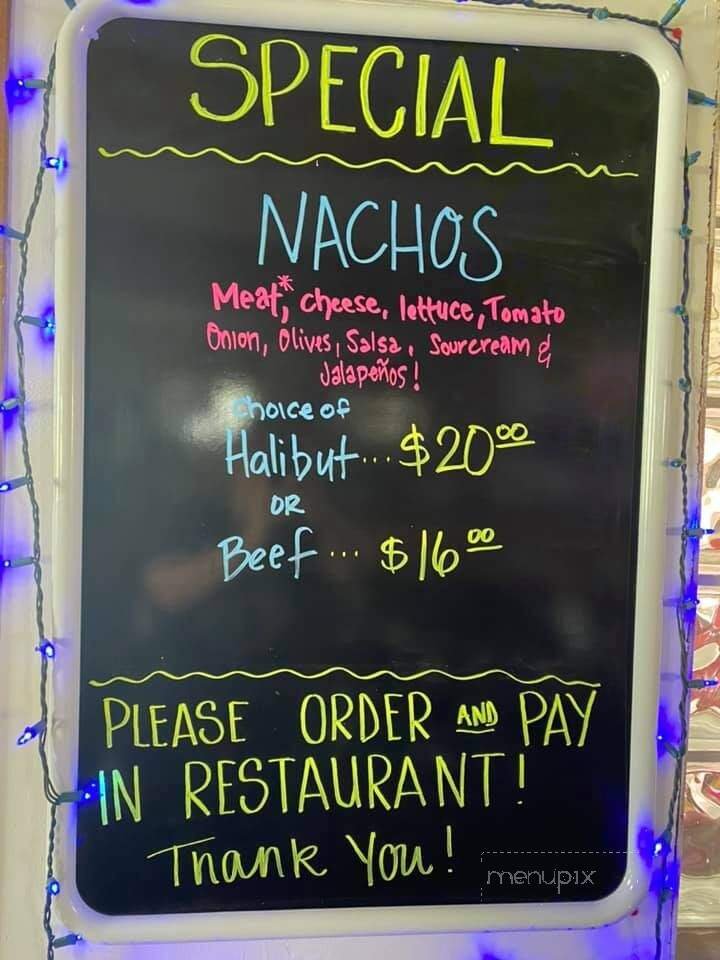 SPECIAL
NACHOS
Meat,* cheese, lettuce, Tomato
Onion, Olives, Salsa, Sourcream &
Jalapeños!
Choice of
Halibut... $20.00
OR
Beef... $16.00
PLEASE ORDER AND PAY
IN RESTAURANT!
Thank You!
menupix